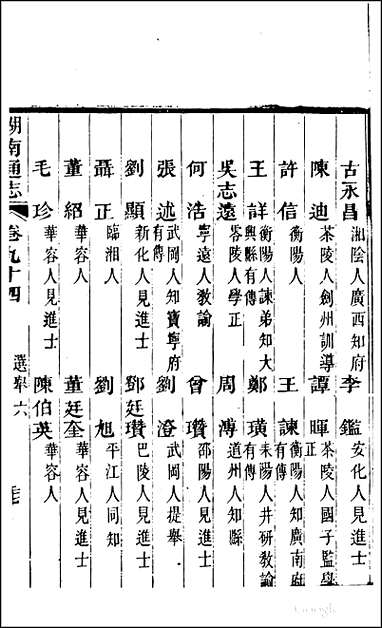 古永昌 湘陰人廣西知府 李鑑 安化人見進士
陳迪 茶陵人劍州訓導 譚暉 茶陵人國子監學正
許信 衡陽人 王諫 衡陽人知廣南府有傳
王詳 衡陽人諫弟知大興縣有傳 鄭璜 耒陽人井研教諭有傳
吳志遠 零陵人學正 周溥 道州人知縣
何浩 寧遠人教諭 曾瓚 邵陽人見進士
張述 武岡人知寶寧府有傳 劉澄 武岡人提舉
劉顯 新化人見進士 鄧廷瓚 巴陵人見進士
聶正 臨湘人 劉旭 平江人同知
董紹 華容人 董廷奎 華容人見進士
毛珍 華容人見進士 陳伯英 華容人
湖南通志 卷九十四 選舉六